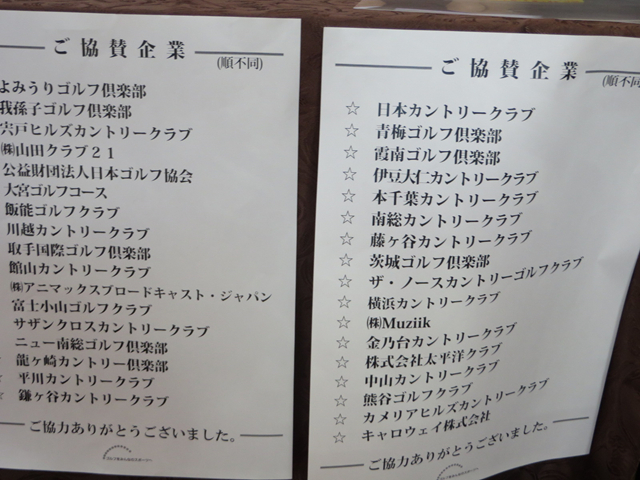 ご協賛企業
(順不同)
よみうりゴルフ倶楽部
我孫子ゴルフ倶楽部
宍戸ヒルズカントリークラブ
㈱山田クラブ２１
公益財団法人日本ゴルフ協会
大宮ゴルフコース
飯能ゴルフクラブ
川越カントリークラブ
取手国際ゴルフ倶楽部
館山カントリークラブ
㈱アニマックスブロードキャスト・ジャパン
富士小山ゴルフクラブ
サザンクロスカントリークラブ
ニュー南総ゴルフ倶楽部
龍ヶ崎カントリー倶楽部
平川カントリークラブ
鎌ヶ谷カントリークラブ
ご協力ありがとうございました。
ご協賛企業
(順不同
☆ 日本カントリークラブ
☆ 青梅ゴルフ倶楽部
☆ 霞南ゴルフ倶楽部
☆ 伊豆大仁カントリークラブ
☆ 本千葉カントリークラブ
☆ 南総カントリークラブ
☆ 藤ヶ谷カントリークラブ
☆ 茨城ゴルフ倶楽部
☆ ザ・ノースカントリーゴルフクラブ
☆ 横浜カントリークラブ
☆ ㈱Muziik
☆ 金乃台カントリークラブ
☆ 株式会社太平洋クラブ
☆ 中山カントリークラブ
☆ 熊谷ゴルフクラブ
☆ カメリアヒルズカントリークラブ
☆ キャロウェイ株式会社
ご協力ありがとうございました。